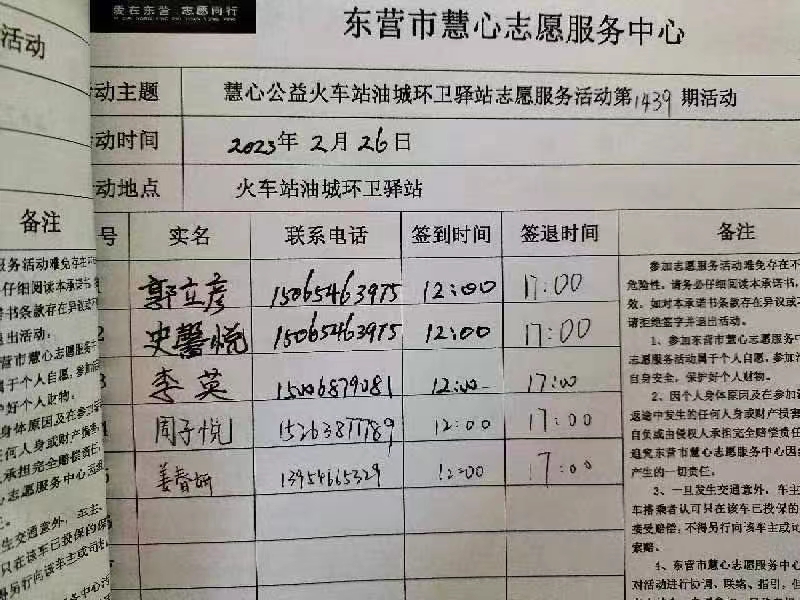 爱在东营 志愿同行
东营市慧心志愿服务中心
活动
动主题 慧心公益火车站油城环卫驿站志愿服务活动第1439期活动
动时间 2023年2月26日
动地点 火车站油城环卫驿站
备注
号 实名 联系电话 签到时间 签退时间 备注
郭立彦 15065463975 12:00 17:00
2 史馨悦 15065463975 12:00 17:00
李英 12:00 17:00
周子悦 15263877789 12:00 17:00
姜春娇 13954665329 12:00 17:00
参加志愿服务活动难免存在不
危险性，请务必仔细阅读本承诺书，
效，如对本承诺书条款存在异议或
请拒绝签字并退出活动。
1、参加东营市慧心志愿服务
志愿服务活动属于个人自愿，参加
自身安全，保护好个人财物。
2、因个人身体原因及在参加
返途中发生的任何人身或财产损害
自负或由侵权人承担完全赔偿责任
追究东营市慧心志愿服务中心因
产生的一切责任。
3、一旦发生交通意外，车主
车搭乘者认可只在该车已投保的
接受赔偿，不得另行向该车主或司
索赔。
4、东营市慧心志愿服务中心
对活动进行协调、联络、指引，但
服务活动难免存在
必仔细阅读本承诺
书条款存在异议或
退出活动。
营市慧心志愿服务
属于个人自愿，参加
护好个人财物。
人身体原因及在参加
任何人身或财产损害
人承担完全赔偿责任
心志愿服务中心因
生交通意外，车主
只在该车已投保的保
得另行向该车主或司机